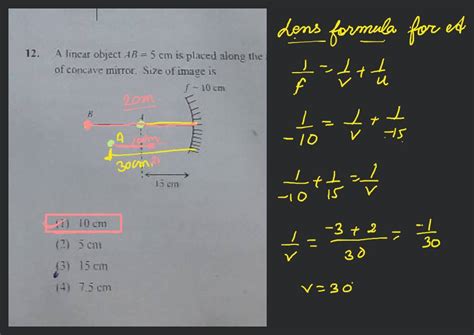 12. A linear object AB = 5 cm is placed along the
of concave mirror. Size of image is
f ~ 10 cm
20m
B
A
30cm
15 cm
(1) 10 cm
(2) 5 cm
(3) 15 cm
(4) 7.5 cm
Lens formula for A
1/f = 1/v + 1/u
1/-10 = 1/v + 1/-15
1/-10 + 1/15 = 1/v
1/v = -3 + 2/30 = -1/30
v = 30